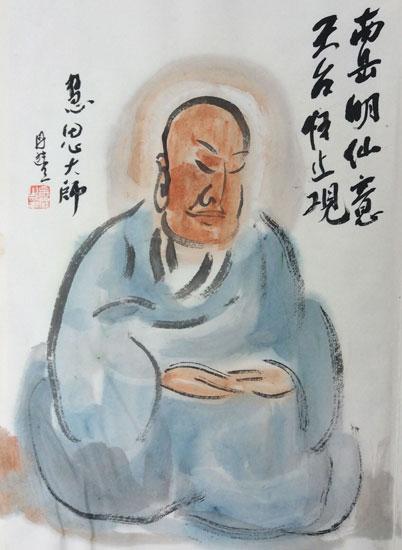 南岳明仙意
天台悟止观
慧思大師